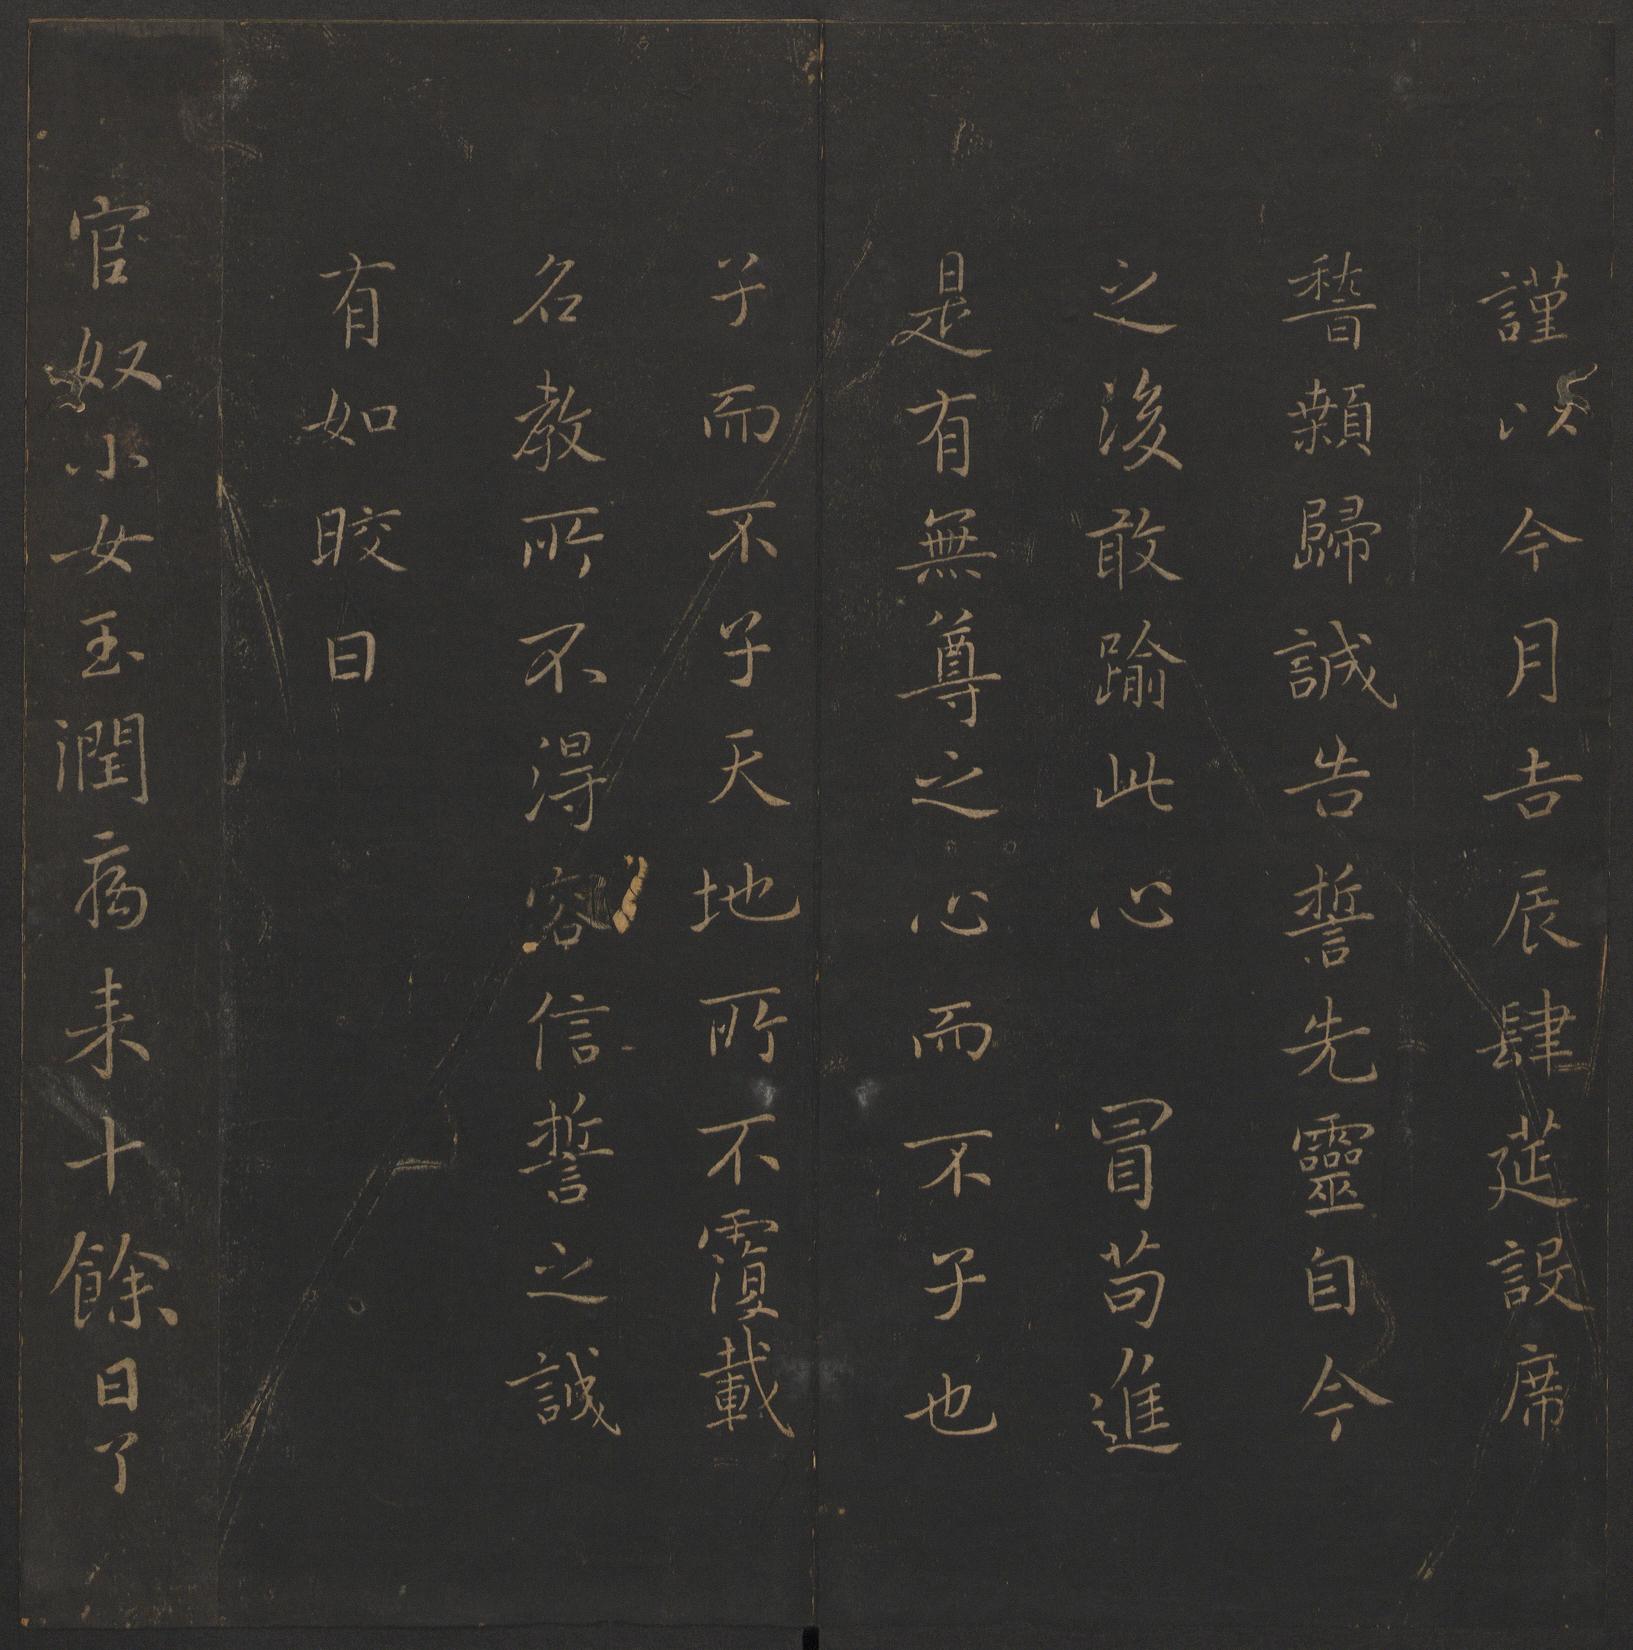 謹以今月吉辰肆莚設席
稽顙歸誠告誓先靈自今
之後敢踰此心　冒苟進
是有無尊之心而不子也
子而不子天地所不覆載
名教所不得容信誓之誠
有如皎日
官奴小女玉潤病来十餘日了